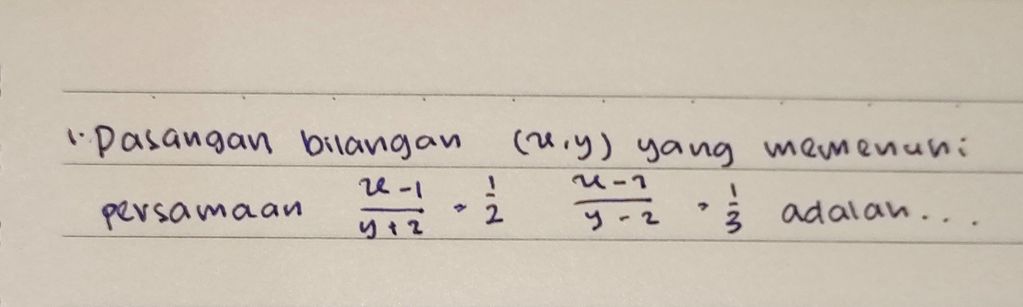 1. Pasangan bilangan (x,y) yang memenuhi
persamaan \frac{x-1}{y+2} = \frac{1}{2} \frac{x-7}{y-2} = \frac{1}{3} adalah...